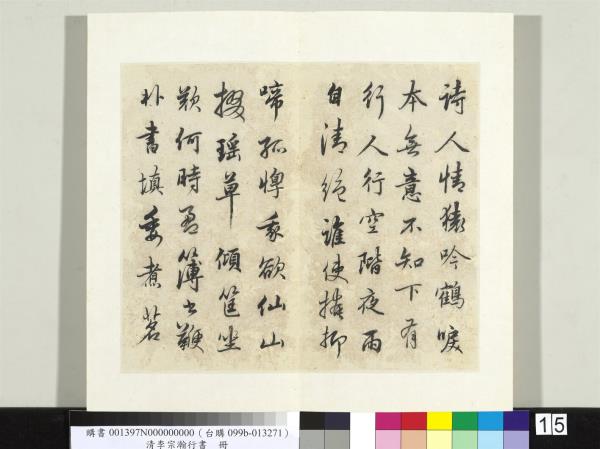 詩人情猿吟鶴唳
本無意不知下有
行人行空階夜雨
自清絕誰使掩抑
啼孤惸我欲仙山
掇瑤草傾筐坐
歎何時盈簿書鞭
扑晝填委煮茗
購書 001397N000000000 ( 台購 099b-013271)
清李宗瀚行書 冊
15